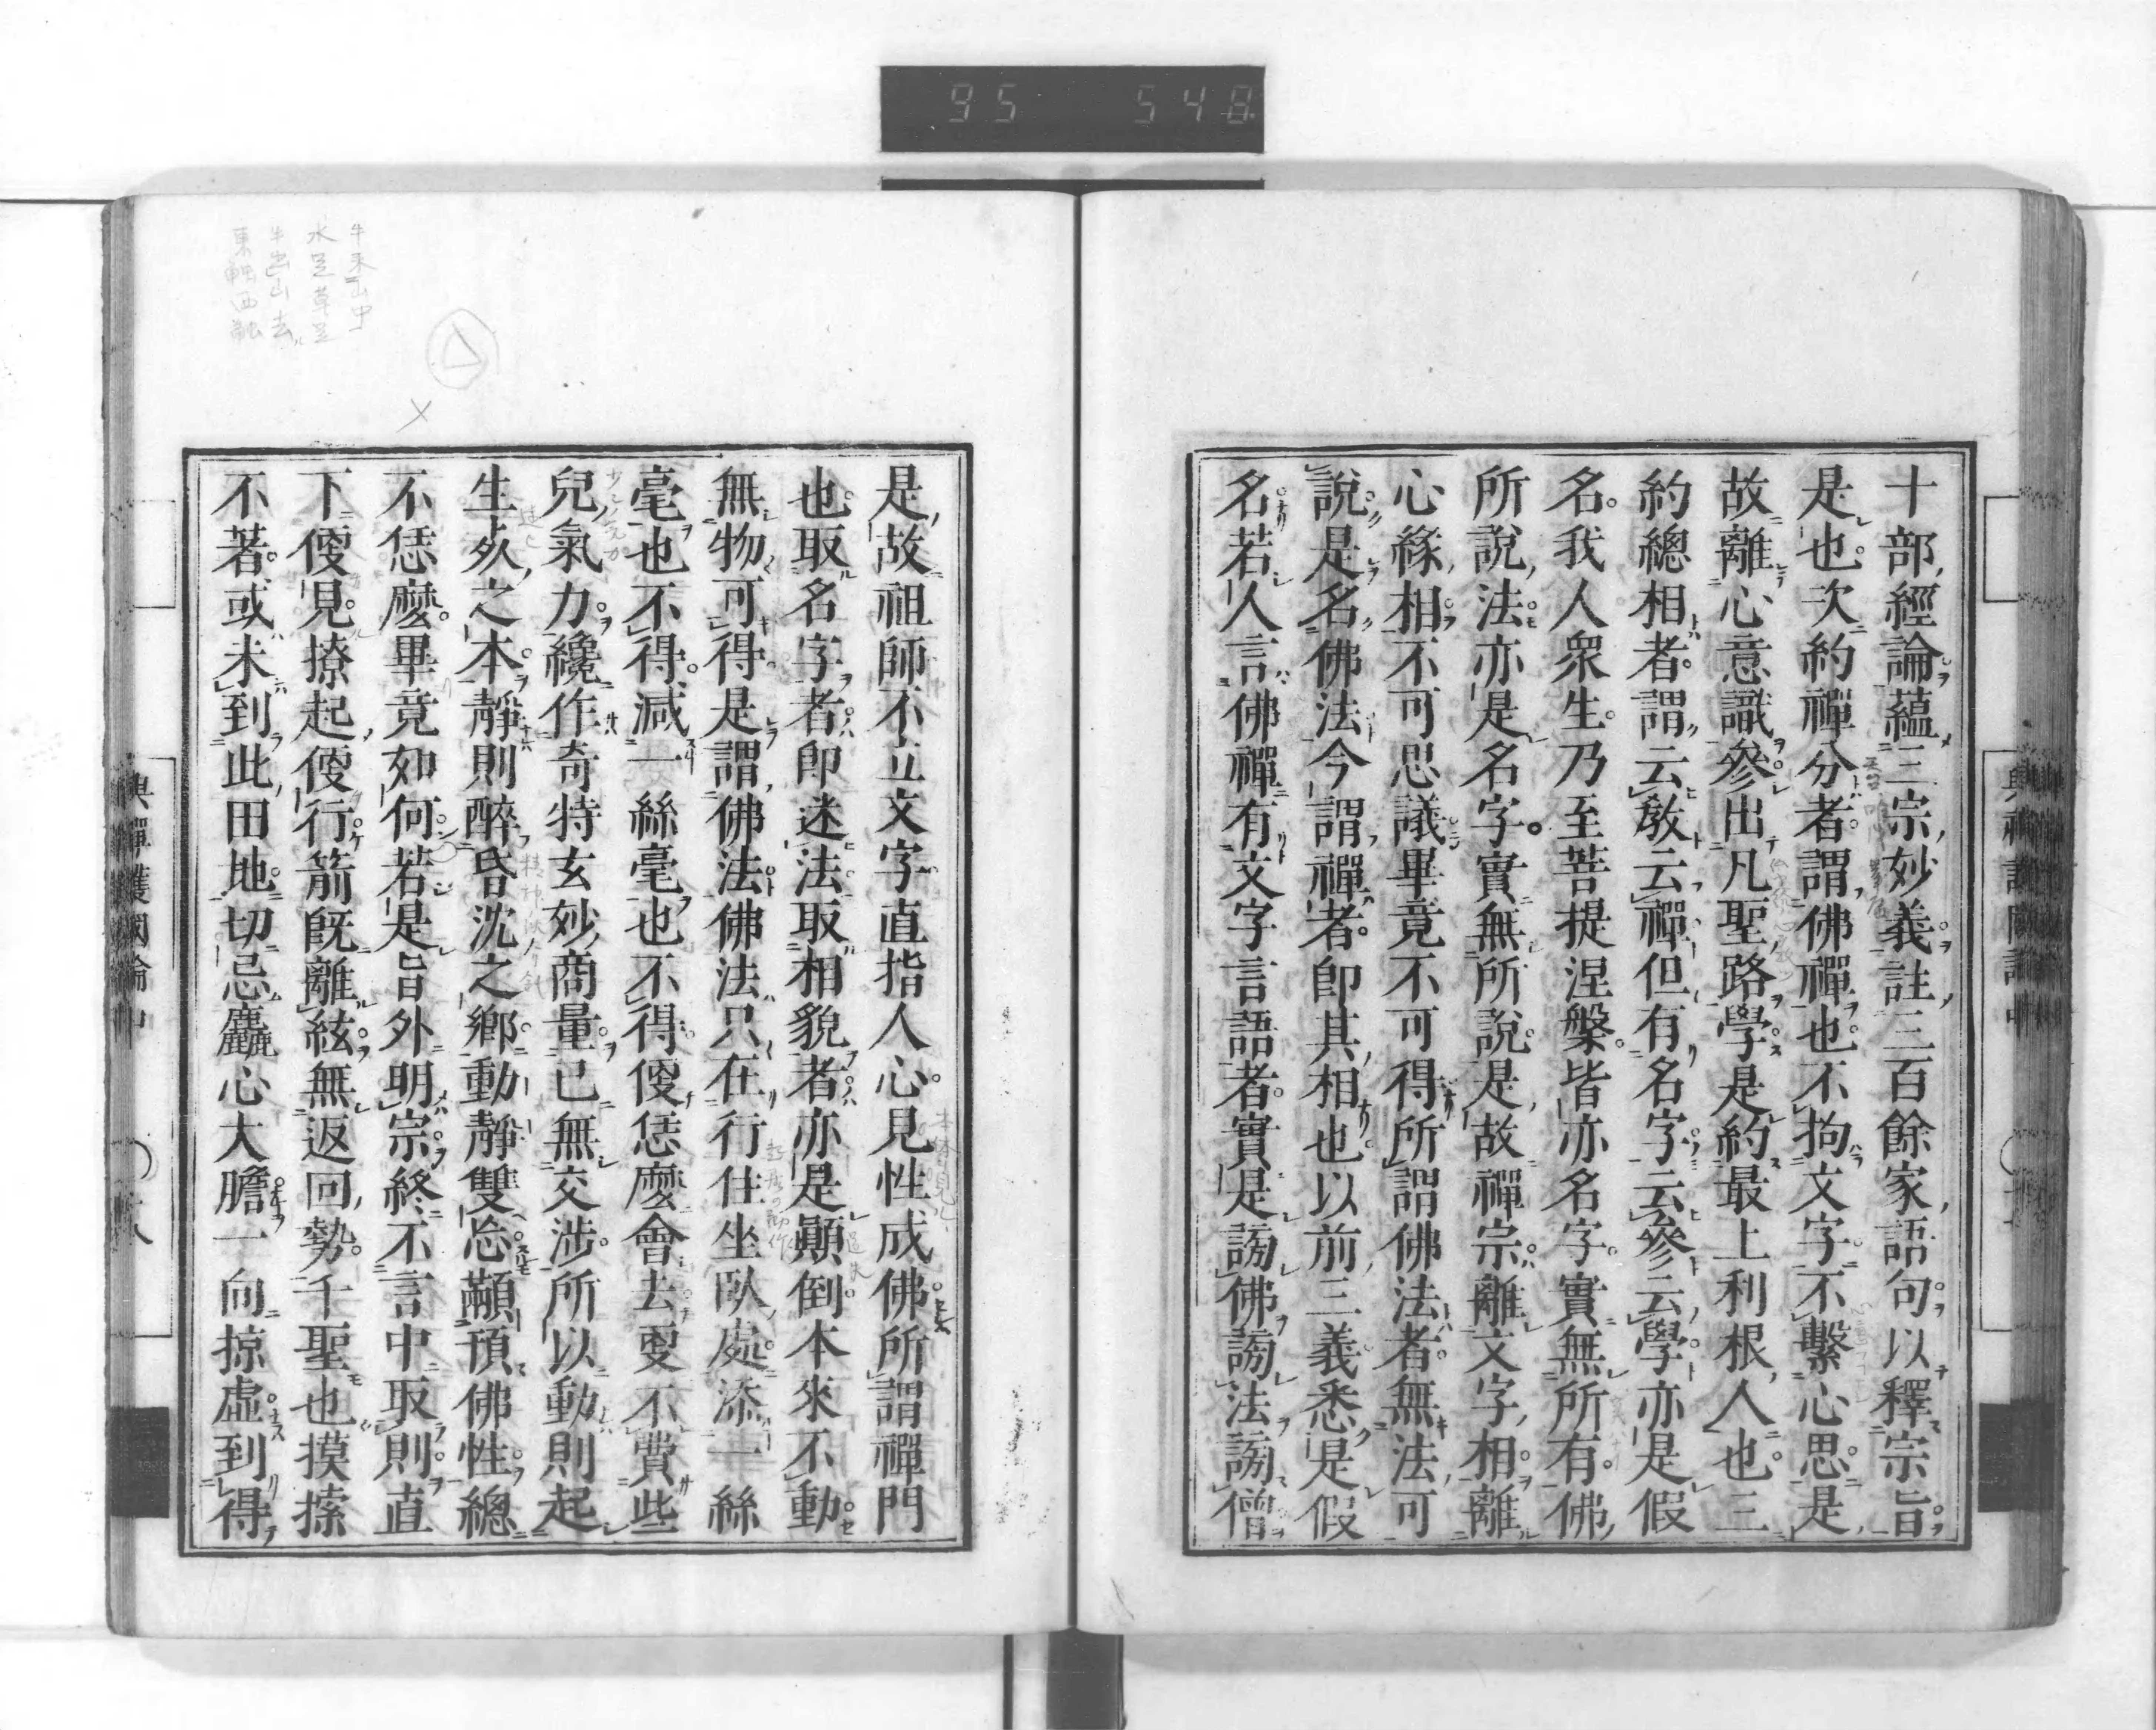 95 548
十部經論蘊三宗妙義註三百餘家語句以釋宗旨
是也次約禪分者謂佛禪也不拘文字不繫心思是
故離心意識參出凡聖路學是約最上利根人也三
約總相者謂云教云禪但有名字云參云學亦是假
名我人眾生乃至菩提涅槃皆亦名字實無所有佛
所說法亦是名字實無所說是故禪宗離文字相離
心緣相不可思議畢竟不可得所謂佛法者無法可
說是名佛法今謂禪者即其相也以前三義悉是假
名若人言佛禪有文字言語者實是謗佛謗法謗僧
是故祖師不立文字直指人心見性成佛所謂禪門
也取名字者即迷法取相貌者亦是顚倒本來不動
無物可得是謂佛法佛法只在行住坐臥處添一絲
毫也不得減一絲毫也不得便恁麼會去更不費些
兒氣力纔作奇特玄妙商量已無交涉所以動則起
生死之本靜則醉昏沈之鄉動靜雙忘顢頇佛性總
不恁麼畢竟如何若是旨外明宗終不言中取則直
下便見撩起便行箭既離絃無返回勢千聖也摸𢱢
不著或未到此田地切忌麤心大膽一向掠虛到得
興禪護國論中